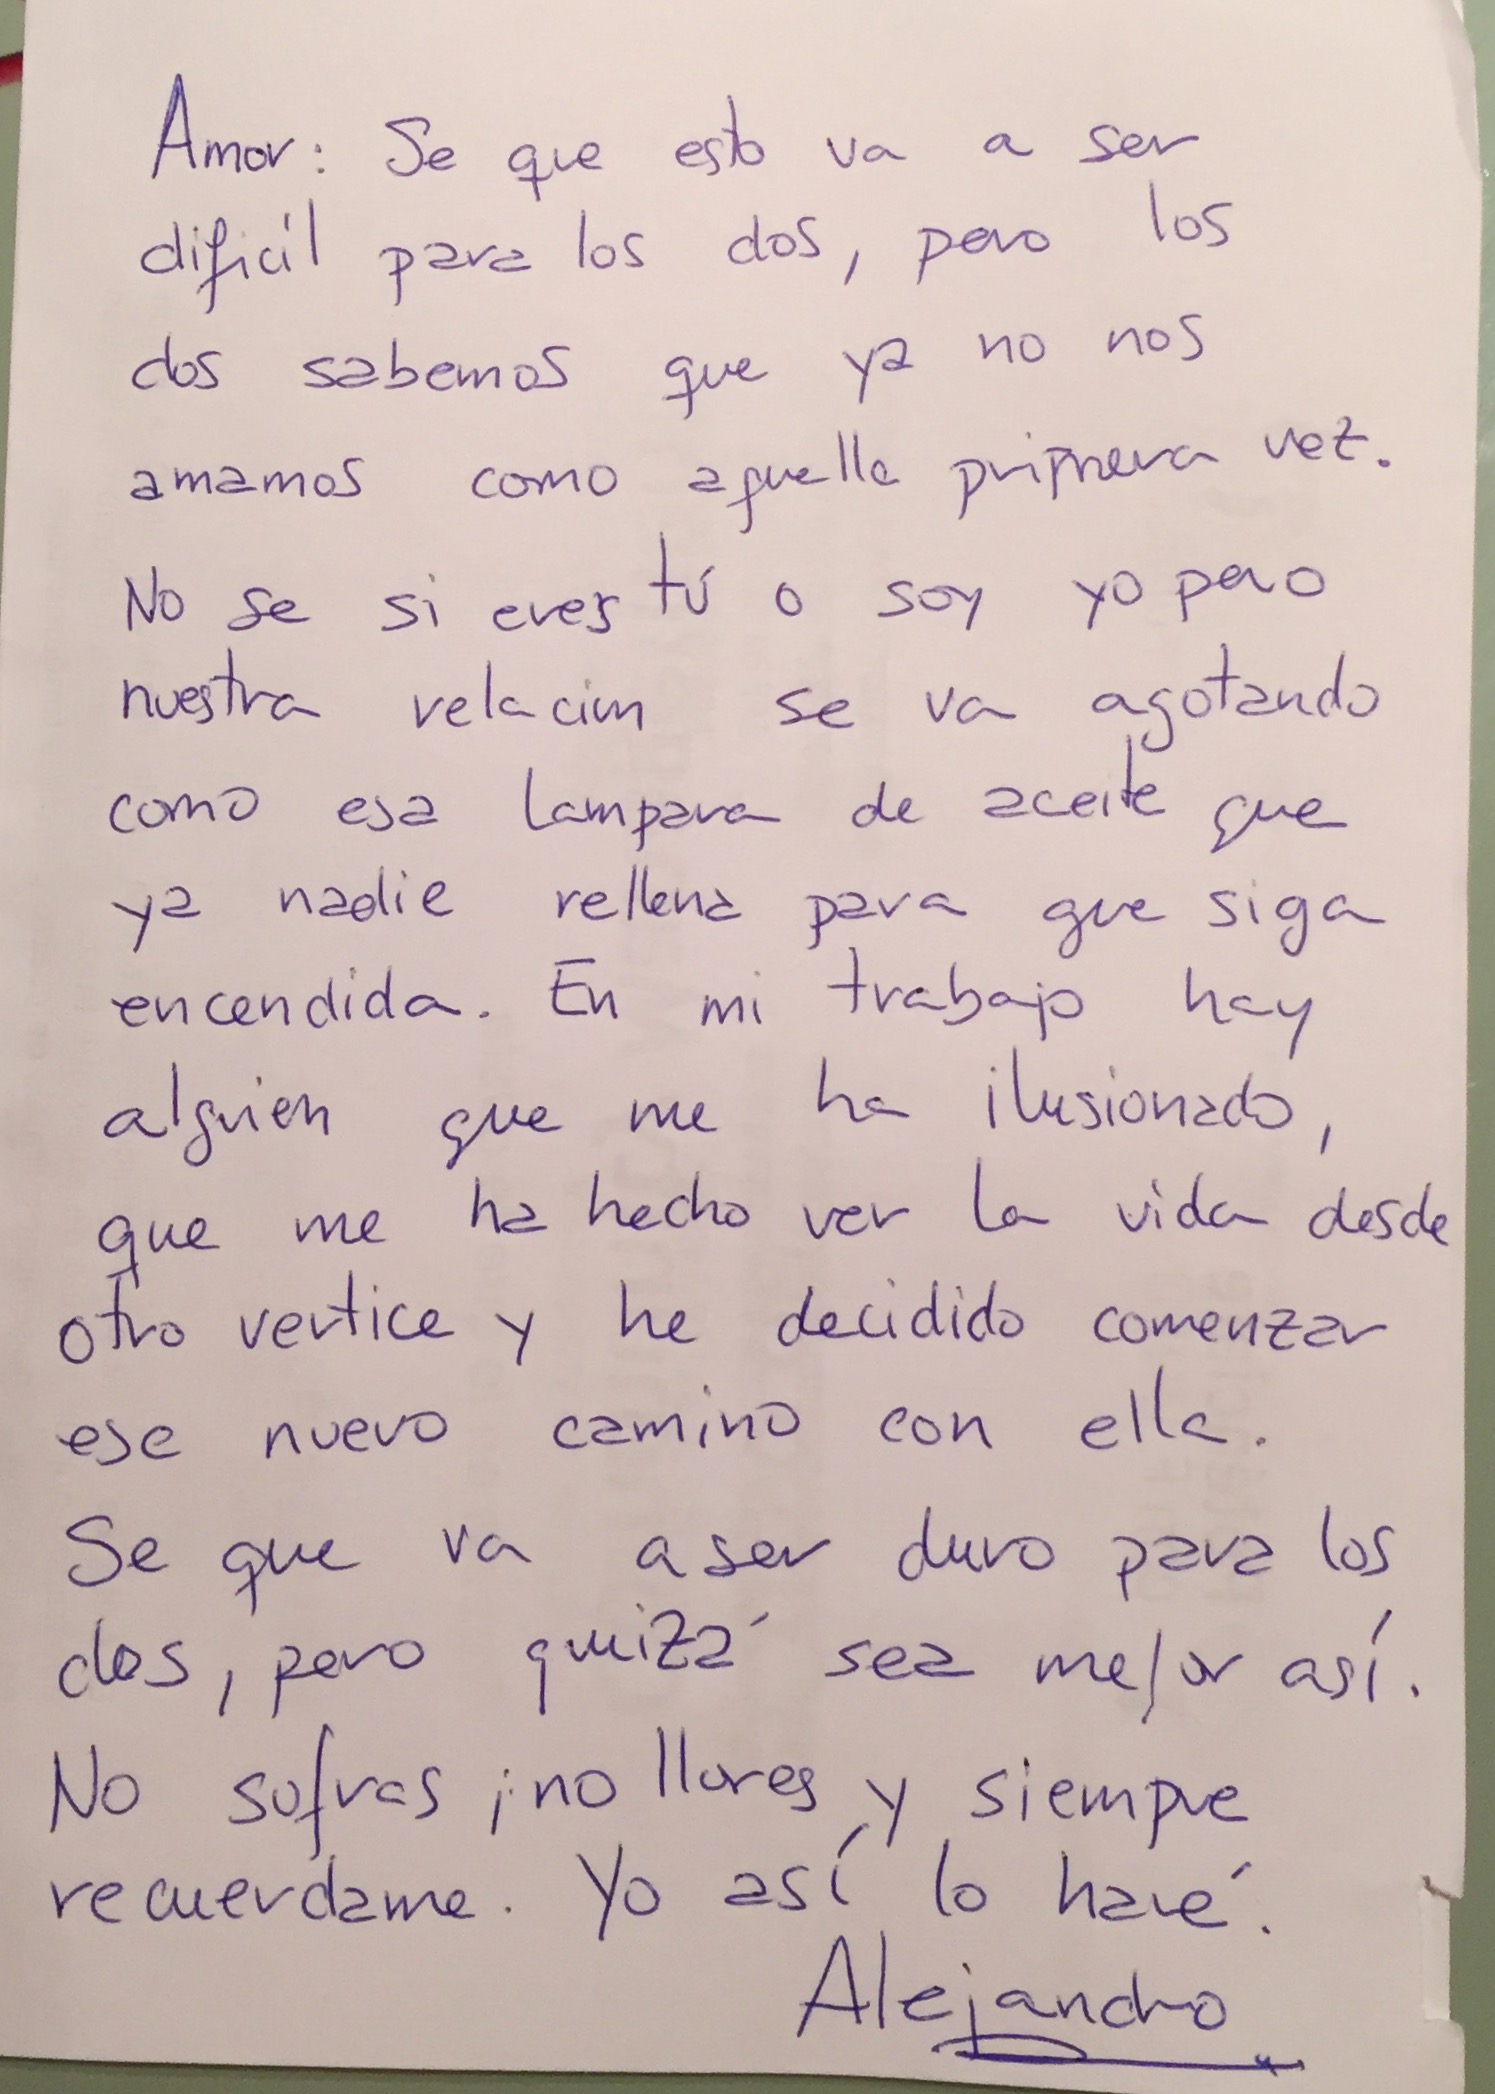 Amor: Se que esto va a ser
dificíl para los dos, pero los
dos sabemos que ya no nos
amamos como aquella primera vez.
No se si eres tú o soy yo pero
nuestra relacion se va agotando
como esa lampara de aceite que
ya nadie rellena para que siga
encendida. En mi trabajo hay
alguien que me ha ilusionado,
que me ha hecho ver la vida desde
otro vertice y he decidido comenzar
ese nuevo camino con ella.
Se que va a ser duro para los
dos, pero quizá sea mejor así.
No sufras ¡no llores y siempre
recuerdame. Yo así lo haré.
Alejandro